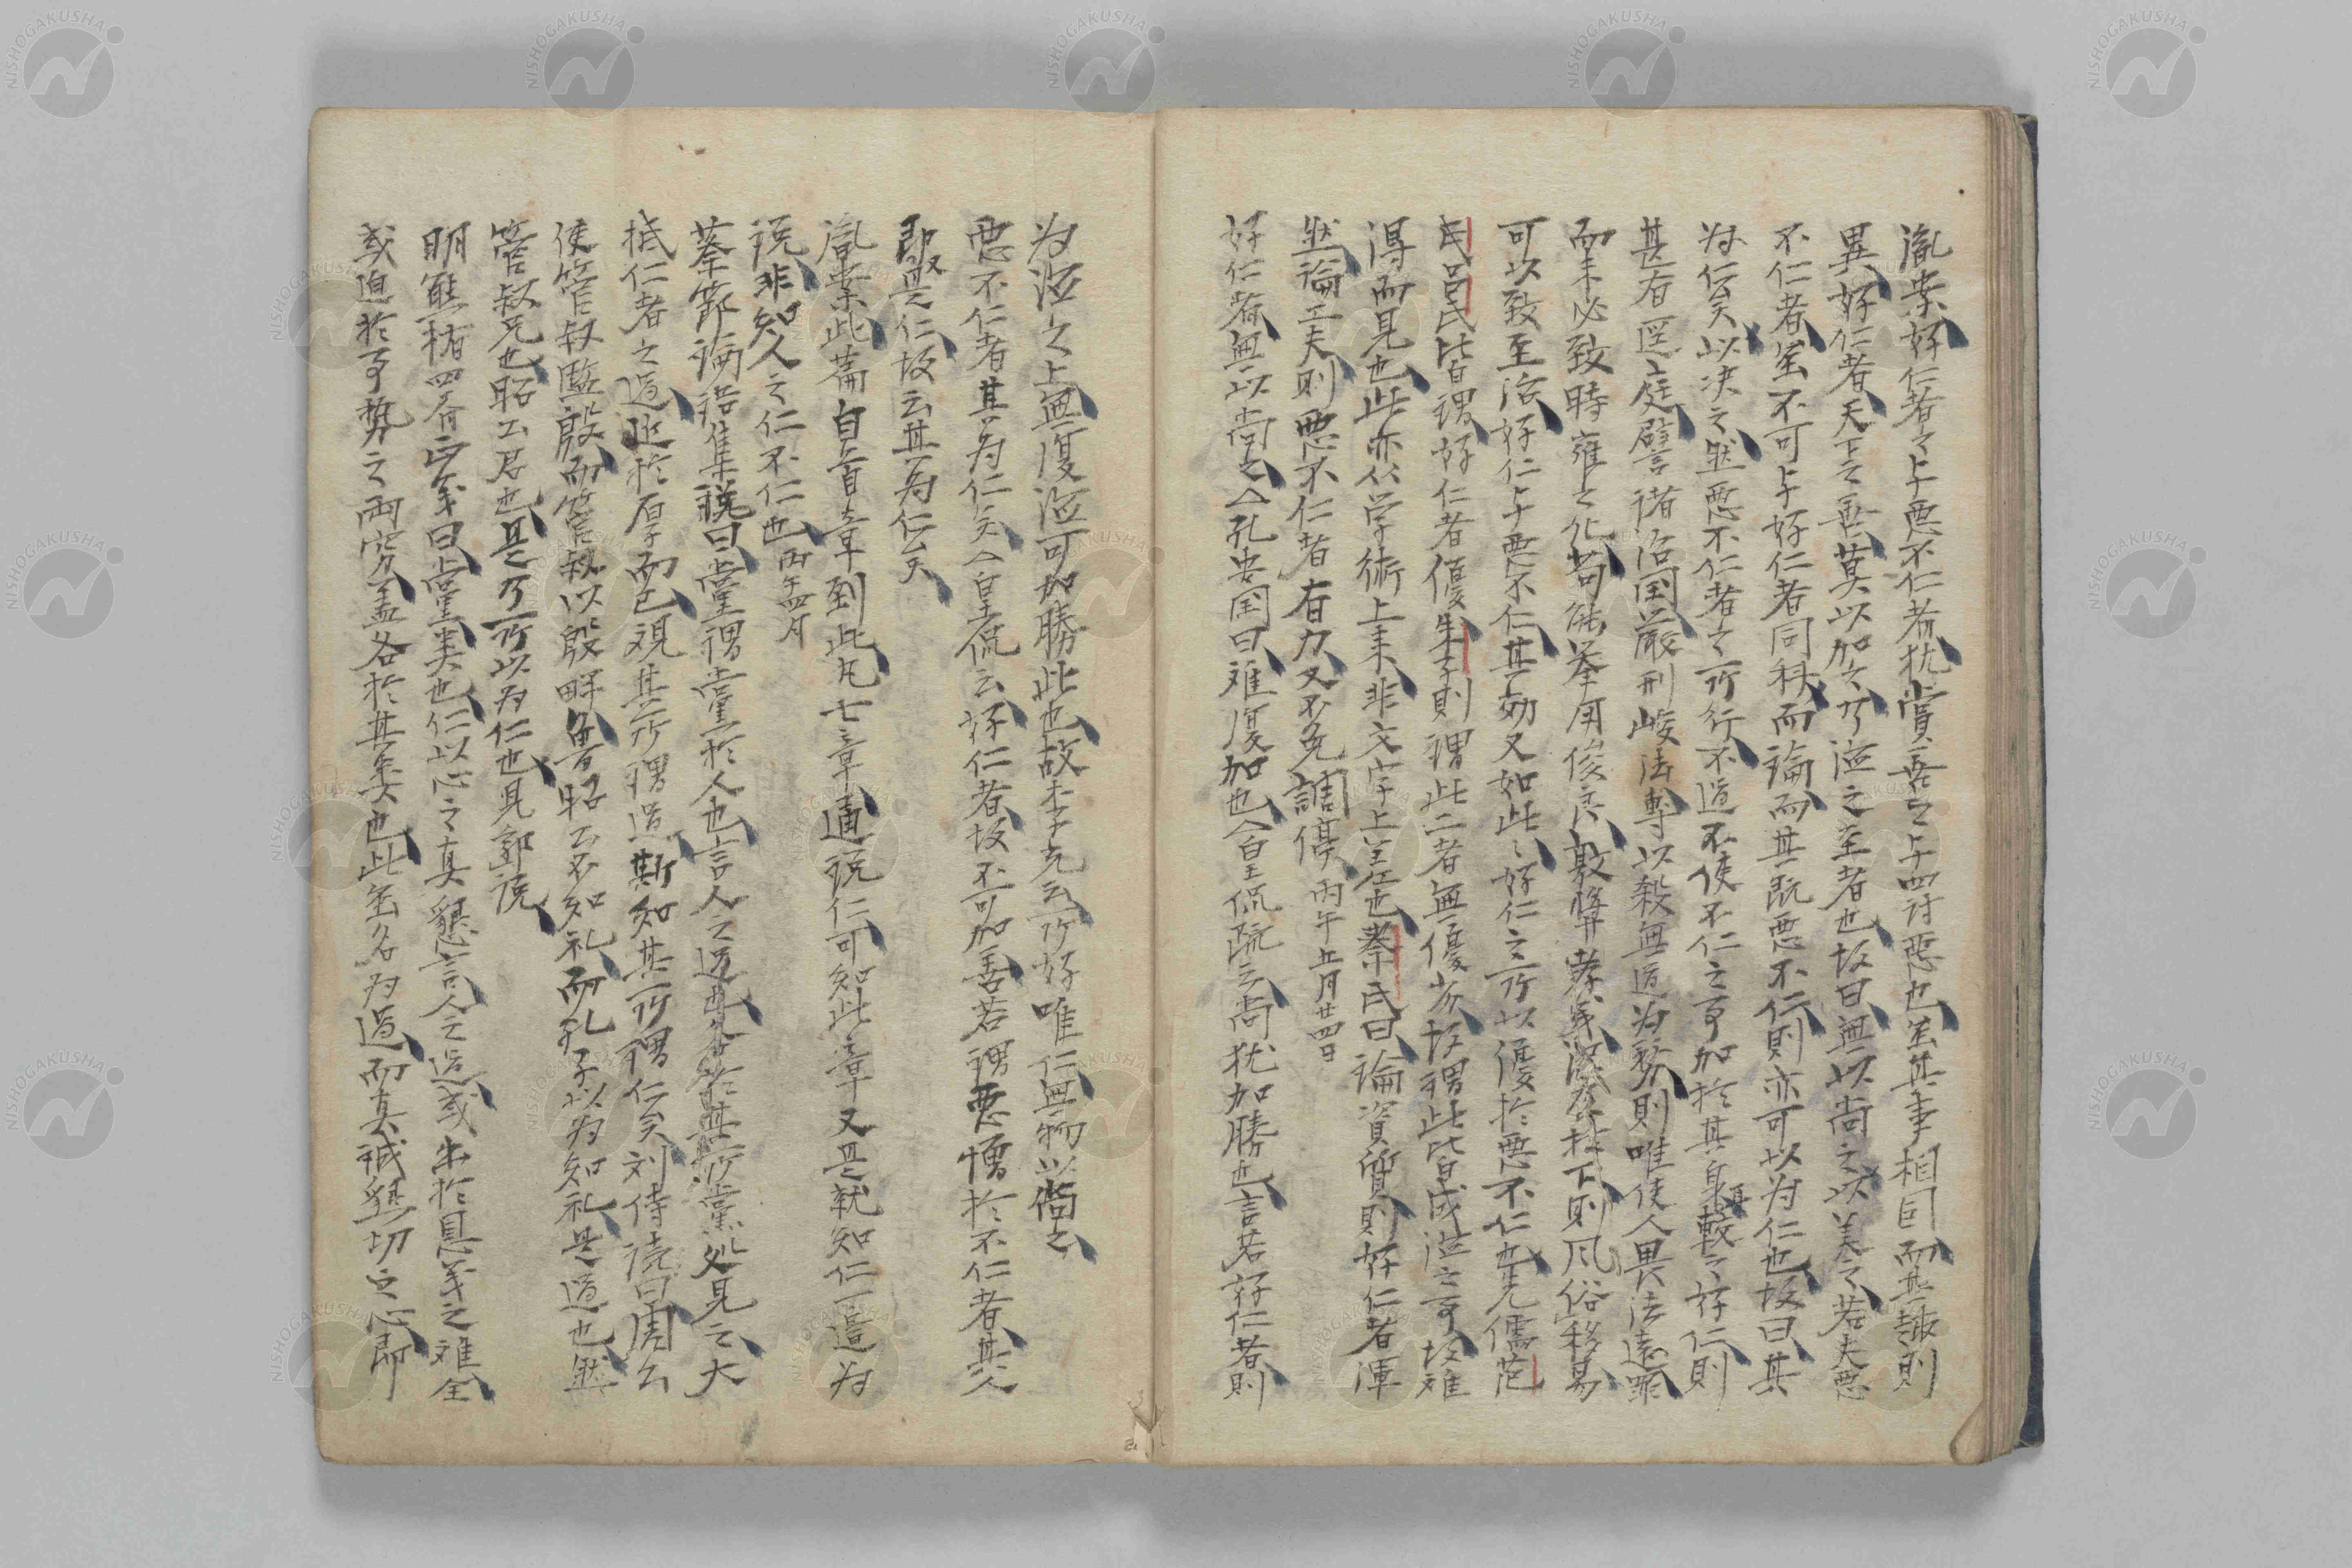 胤案好仁者之与悪不仁者犹賞善之与四討悪也虽其事相自而其趣則
異好仁者天下之善莫以加之乃盗之至者也故曰無以尚之以美之若夫悪
不仁者虽不可与好仁者同科而論而其既悪不仁則亦可以为仁也故曰其
为仁矣以决之然悪不仁者之所行不過不使不仁之事加於其身耳較之好仁則
甚有逕庭譬诸治国嚴刑峻法専以殺無道为務則唯使人畏法遠罪
而未必致時雍之化苟能举用俊良敦奬孝義
下則风俗移易
可以致至治好仁与悪不仁其効又如此好仁之所以優於悪不仁也先儒范
氏吕氏皆謂好仁者優朱子則謂此二者無優劣故謂此皆成
之事故难
得而見也此亦从学術上来非文字上
也蔡氏曰論資質則好仁者渾
然論工夫則悪不仁者有力又不免調停丙午五月廿四日
好仁者無以尚之△孔安国曰难復加也△皇侃疏云尚犹加勝也言若好仁者則
为
之上無復
可加勝此也故李充云所好唯仁無物以尚之
悪不仁者其为仁矣△皇侃云好仁者故不可加善若謂悪憎於不仁者其人
即是仁故云其为仁矣
胤案此篇自首章到此凡七章通説仁可知此章又是就知仁一邉为
説非知人之仁不仁也丙午四月
蔡節論語集説曰黨謂黨於人也言人之過
各於其所黨処見之大
抵仁者之過
於厚而已观其所謂過斯知其所謂仁矣刘侍读曰周公
使管叔監殷而管叔以殷畔鲁昭公不知礼而孔子以为知礼是過也然
管叔兄也昭公君也是乃所以为仁也見郭説
明熊
四
義曰黨类也仁以心之真懇言人之過或出於恩義之难全
或迫於事勢之两窮盖各於其类也此虽名为過而真诚懇切之心即